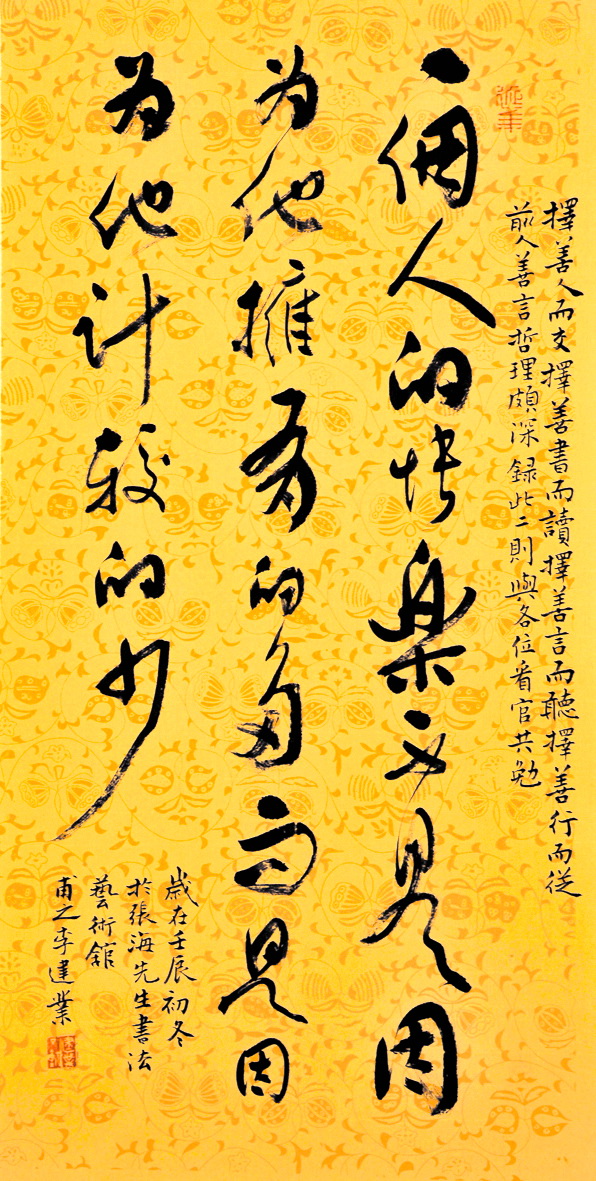 擇善人而交擇善書而讀擇善言而聽擇善行而從
前人善言哲理頗深錄此二則與各位看官共勉
一個人的快樂不是因
为他擁有的多而是因
为他計較的少
歲在壬辰初冬
於張海先生書法
藝術館
甫之李建業